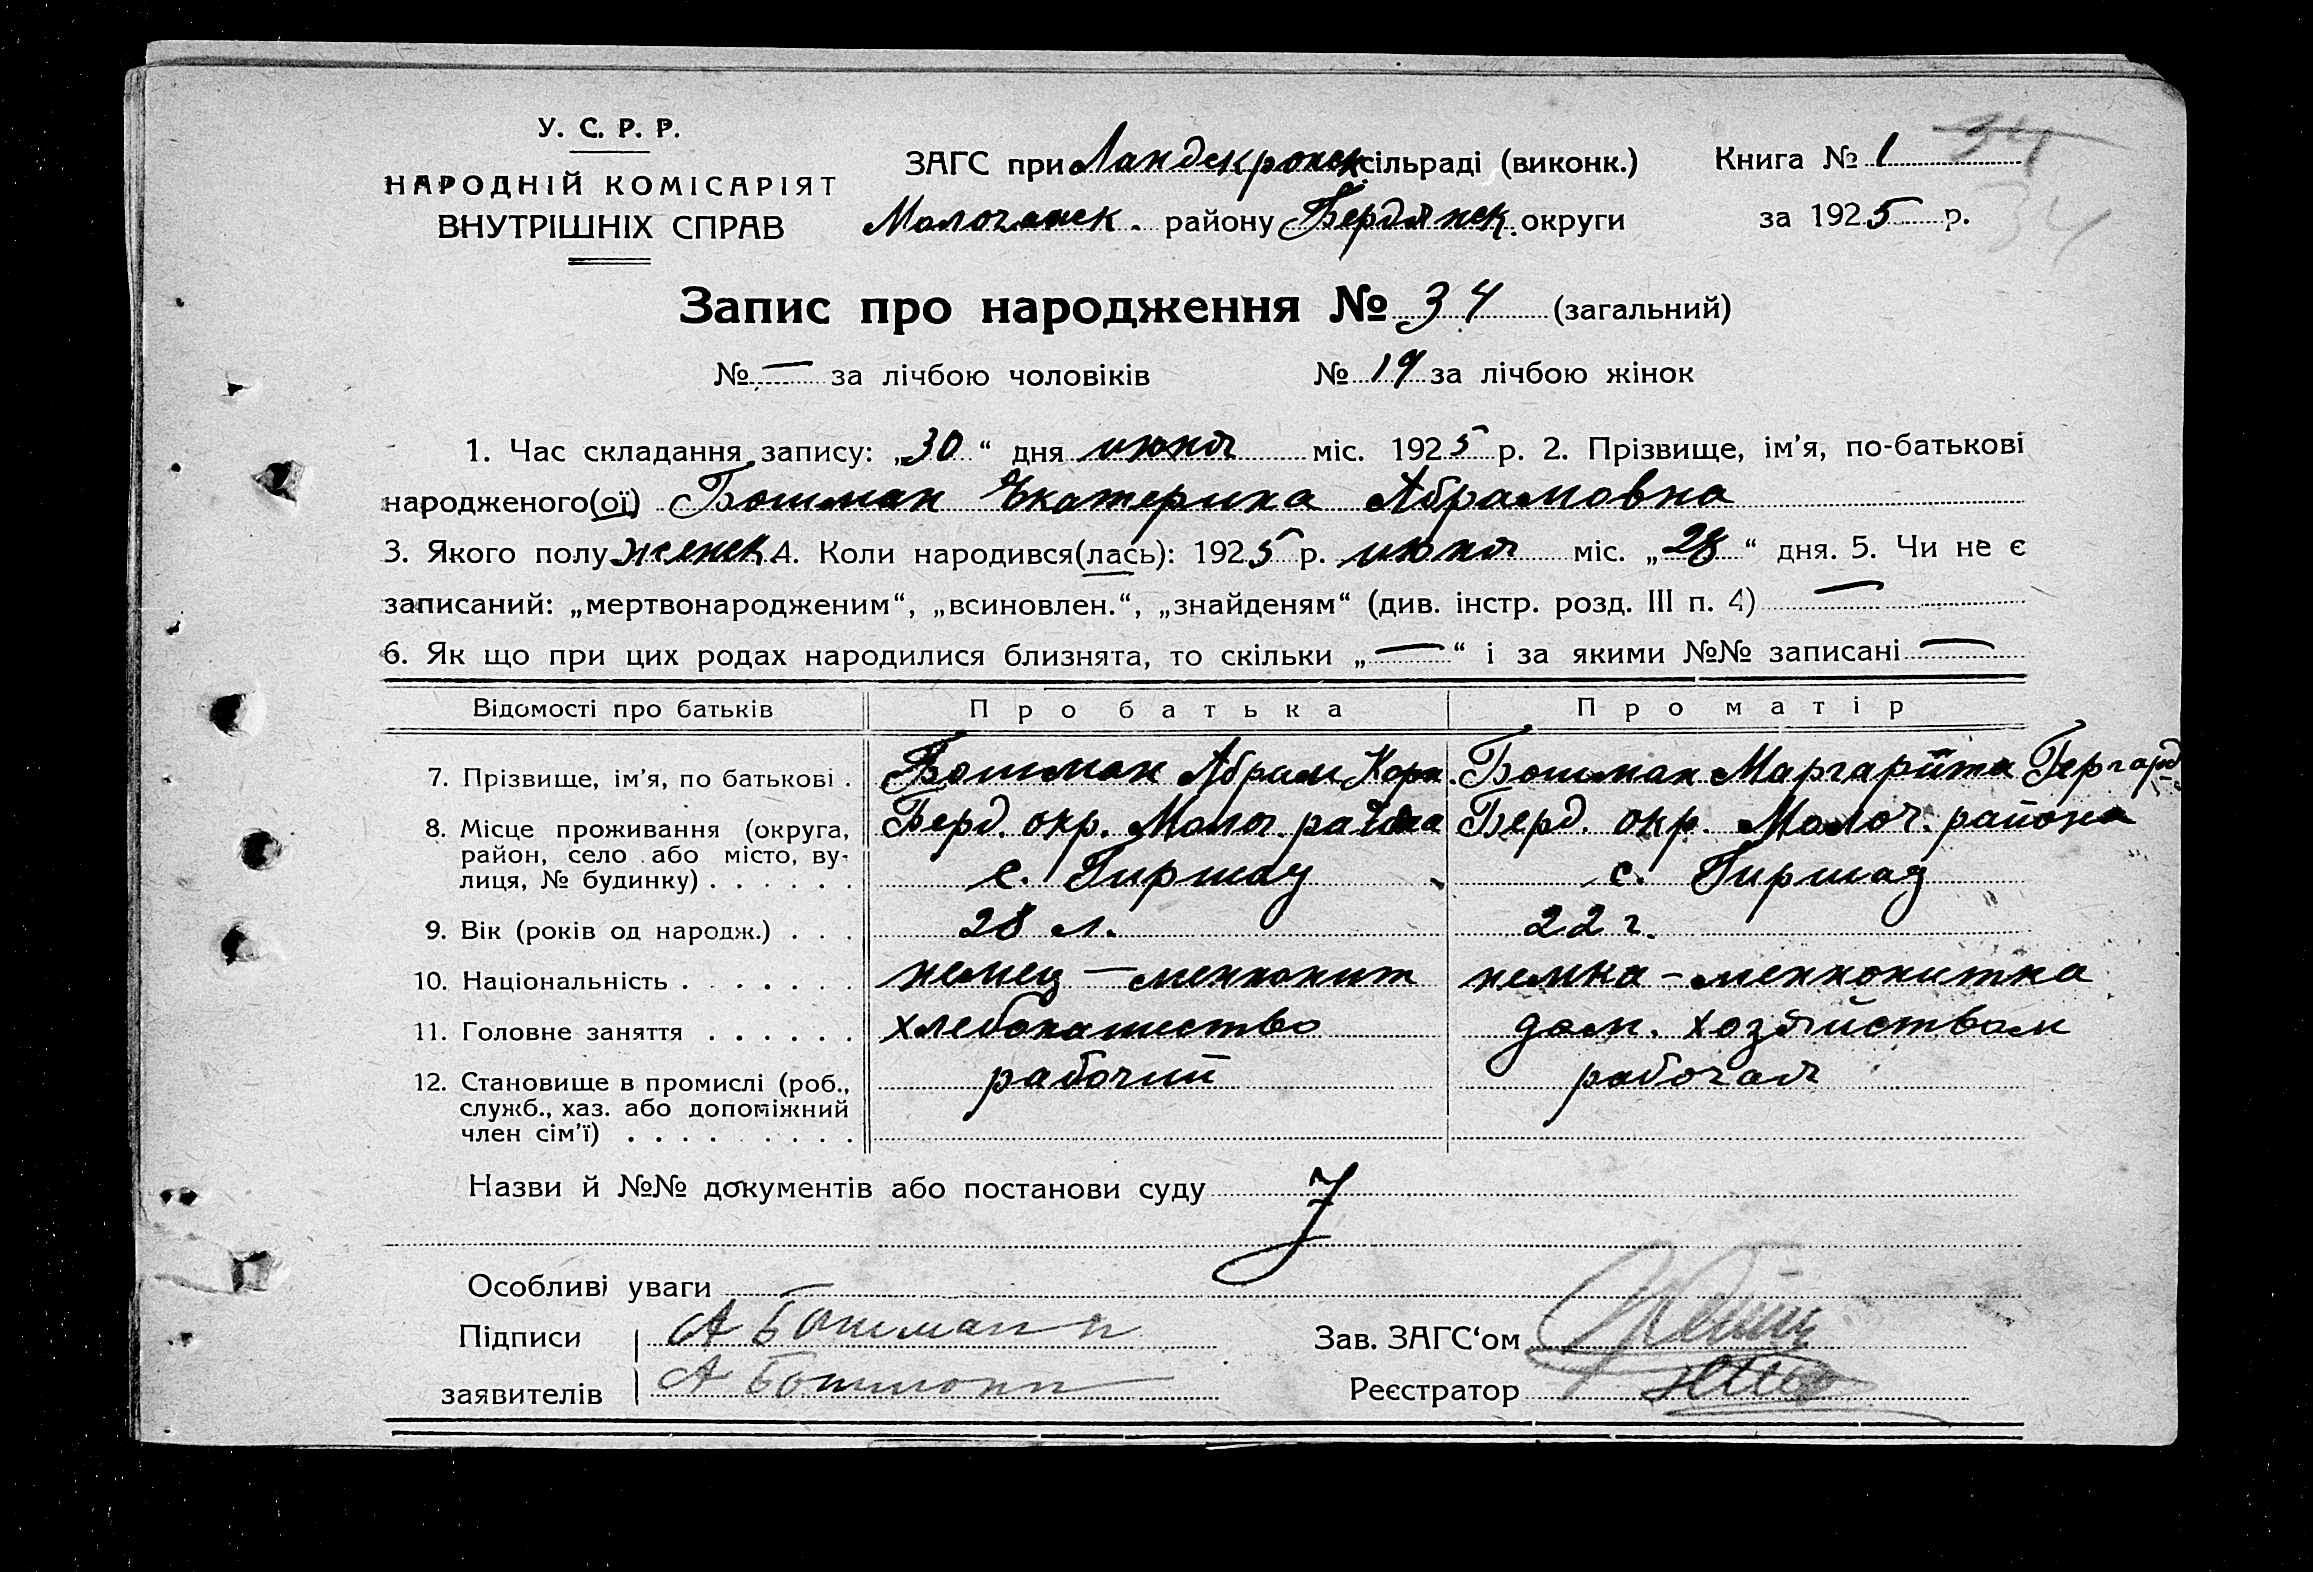 У. С. Р. Р.
НАРОДНІЙ КОМІСАРІЯТ
ВНУТРІШНІХ СПРАВ
ЗАГС при Ландскронск. сільраді (виконк.) Книга № 1 34
Молочанск. району Бердянск. округи за 1925 р. 34
Запис про народження № 34 (загальний)
№ — за лічбою чоловіків № 19 за лічбою жінок
1. Час складання запису: „30“ дня июня міс. 1925 р. 2. Прізвище, ім’я, по-батькові
народженого(ої) Бошман Екатерина Абрамовна
3. Якого полу женск 4. Коли народився(лась): 1925 р. июня міс. „28“ дня. 5. Чи не є
записаний: „мертвонародженим“, „всиновлен.“, „знайденям“ (див. інстр. розд. III п. 4) —
6. Як що при цих родах народилися близнята, то скільки „—“ і за якими №№ записані —
Відомості про батьків Про батька Про матір
7. Прізвище, ім’я, по батькові . Бошман Абрам Корн. Бошман Маргарита Гергард
8. Місце проживання (округа, Берд. окр. Молоч. района Берд. окр. Молоч. района
район, село або місто, ву-
лиця, № будинку) . . . . . . с. Гиршау с. Гиршау
9. Вік (років од народж.) . . . 28 л. 22 г.
10. Національність . . . . . . . немец – меннонит немка – меннонитка
11. Головне заняття . . . . . . хлебопашество дом. хозяйством
12. Становище в промислі (роб., рабочий рабочая
служб., хаз. або допоміжний
член сім’ї) . . . . . . . . .
Назви й №№ документів або постанови суду
Особливі уваги
Підписи А Бошманн Зав. ЗАГС‘ом
заявителів А Бошманн Реєстратор